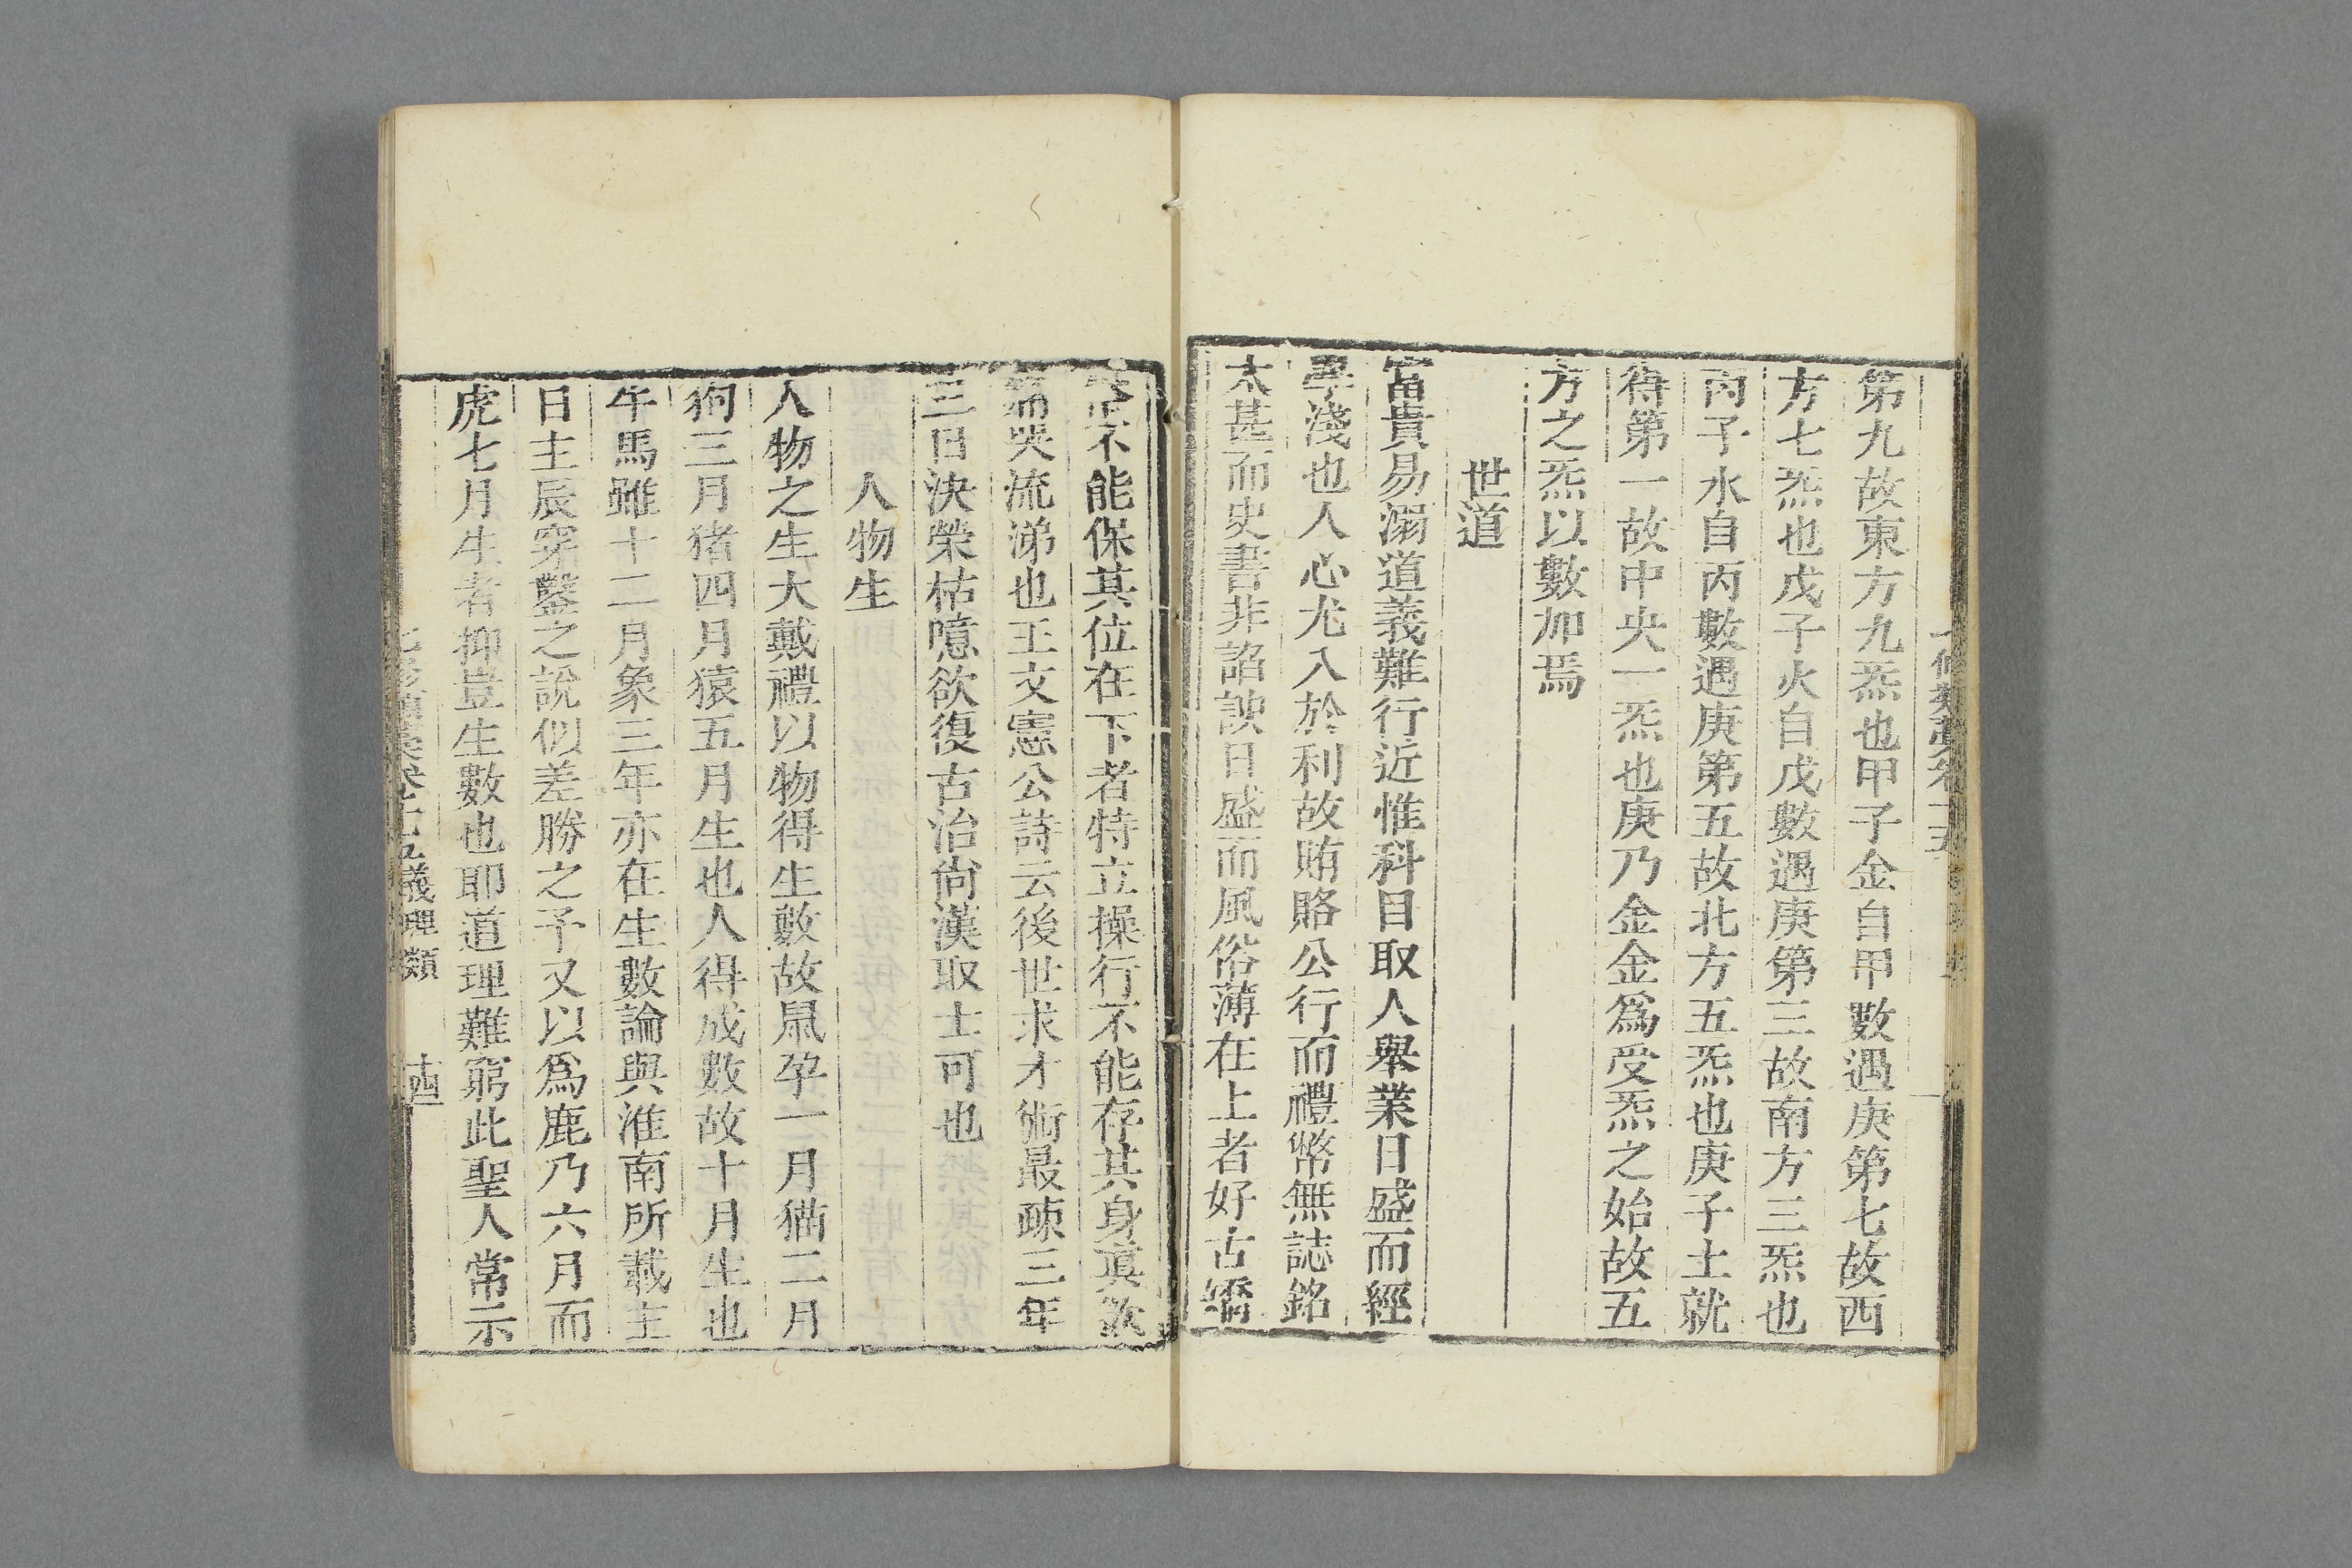 第九故東方九炁也甲子金自甲數遇庚第七故西
方七炁也戊子火自戊數遇庚第三故南方三炁也
丙子水自丙數遇庚第五故北方五炁也庚子土就
得第一故中央一炁也庚乃金金爲受炁之始故五
方之炁以數加焉
世道
富貴易溺道義難行近惟科目取人舉業日盛而經
學淺也人心尤入於利故賄賂公行而禮幣無誌銘
太甚而史書非諂諛日盛而風俗薄在上者好古矯
不能保其位在下者特立操行不能存其身眞欲
痛哭流涕也王文憲公詩云後世求才術最疎三年
三日決榮枯噫欲復古治尙漢取士可也
人物生
人物之生大戴禮以物得生數故鼠孕一月猫二月
狗三月猪四月猿五月生也人得成數故十月生也
牛馬雖十二月象三年亦在生數論與淮南所載主
日主辰穿鑿之說似差勝之予又以爲鹿乃六月而
虎七月生者抑豈生數也耶道理難窮此聖人常示
七修類稾卷十五義理類
十四